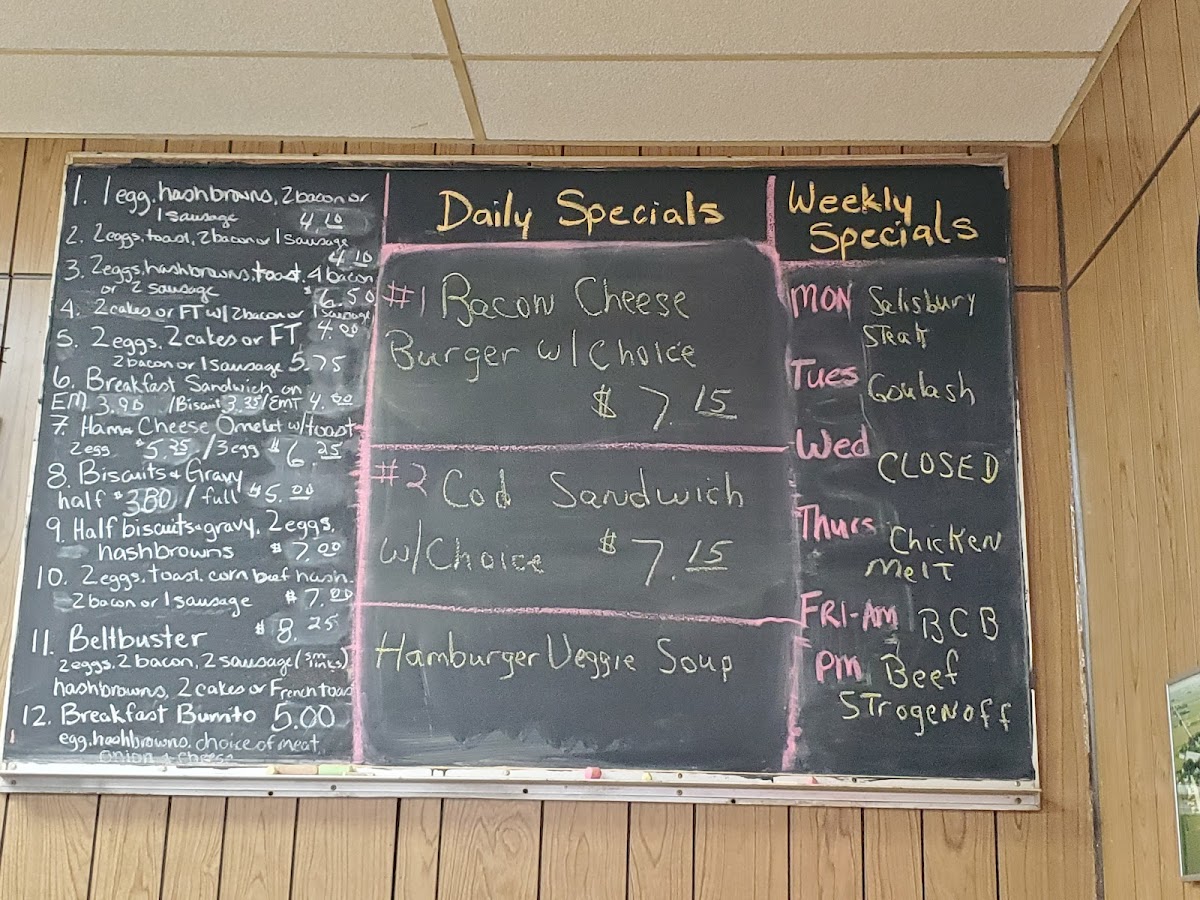 1. 1 egg, hashbrowns, 2 bacon or
1 sausage 4.10
2. 2 eggs, toast, 2 bacon or 1 sausage
4.10
3. 2 eggs, hashbrowns, toast, 4 bacon
or 2 sausage $6.50
4. 2 cakes or FT w/ 2 bacon or 1 sausage
4.00
5. 2 eggs, 2 cakes or FT
2 bacon or 1 sausage 5.75
6. Breakfast Sandwich on
EM 3.90 /Biscuit 3.35/EMT 4.00
7. Ham & Cheese Omelet w/toast
2 egg $5.35 /3 egg $6.25
8. Biscuits & Gravy
half $3.80 / full $5.00
9. Half biscuits & gravy, 2 eggs,
hashbrowns $7.00
10. 2 eggs, toast, corn beef hash,
2 bacon or 1 sausage $7.00
11. Beltbuster $8.25
2 eggs, 2 bacon, 2 sausage (sm links)
hashbrowns, 2 cakes or French toast
12. Breakfast Burrito 5.00
egg, hashbrowns, choice of meat,
onion & cheese
Daily Specials
#1 Bacon Cheese
Burger w/Choice
$7.15
#2 Cod Sandwich
w/Choice $7.15
Hamburger Veggie Soup
Weekly
Specials
MON Salisbury
Steak
Tues Goulash
Wed
CLOSED
Thurs Chicken
Melt
FRI-AM BCB
PM Beef
STrogenoff